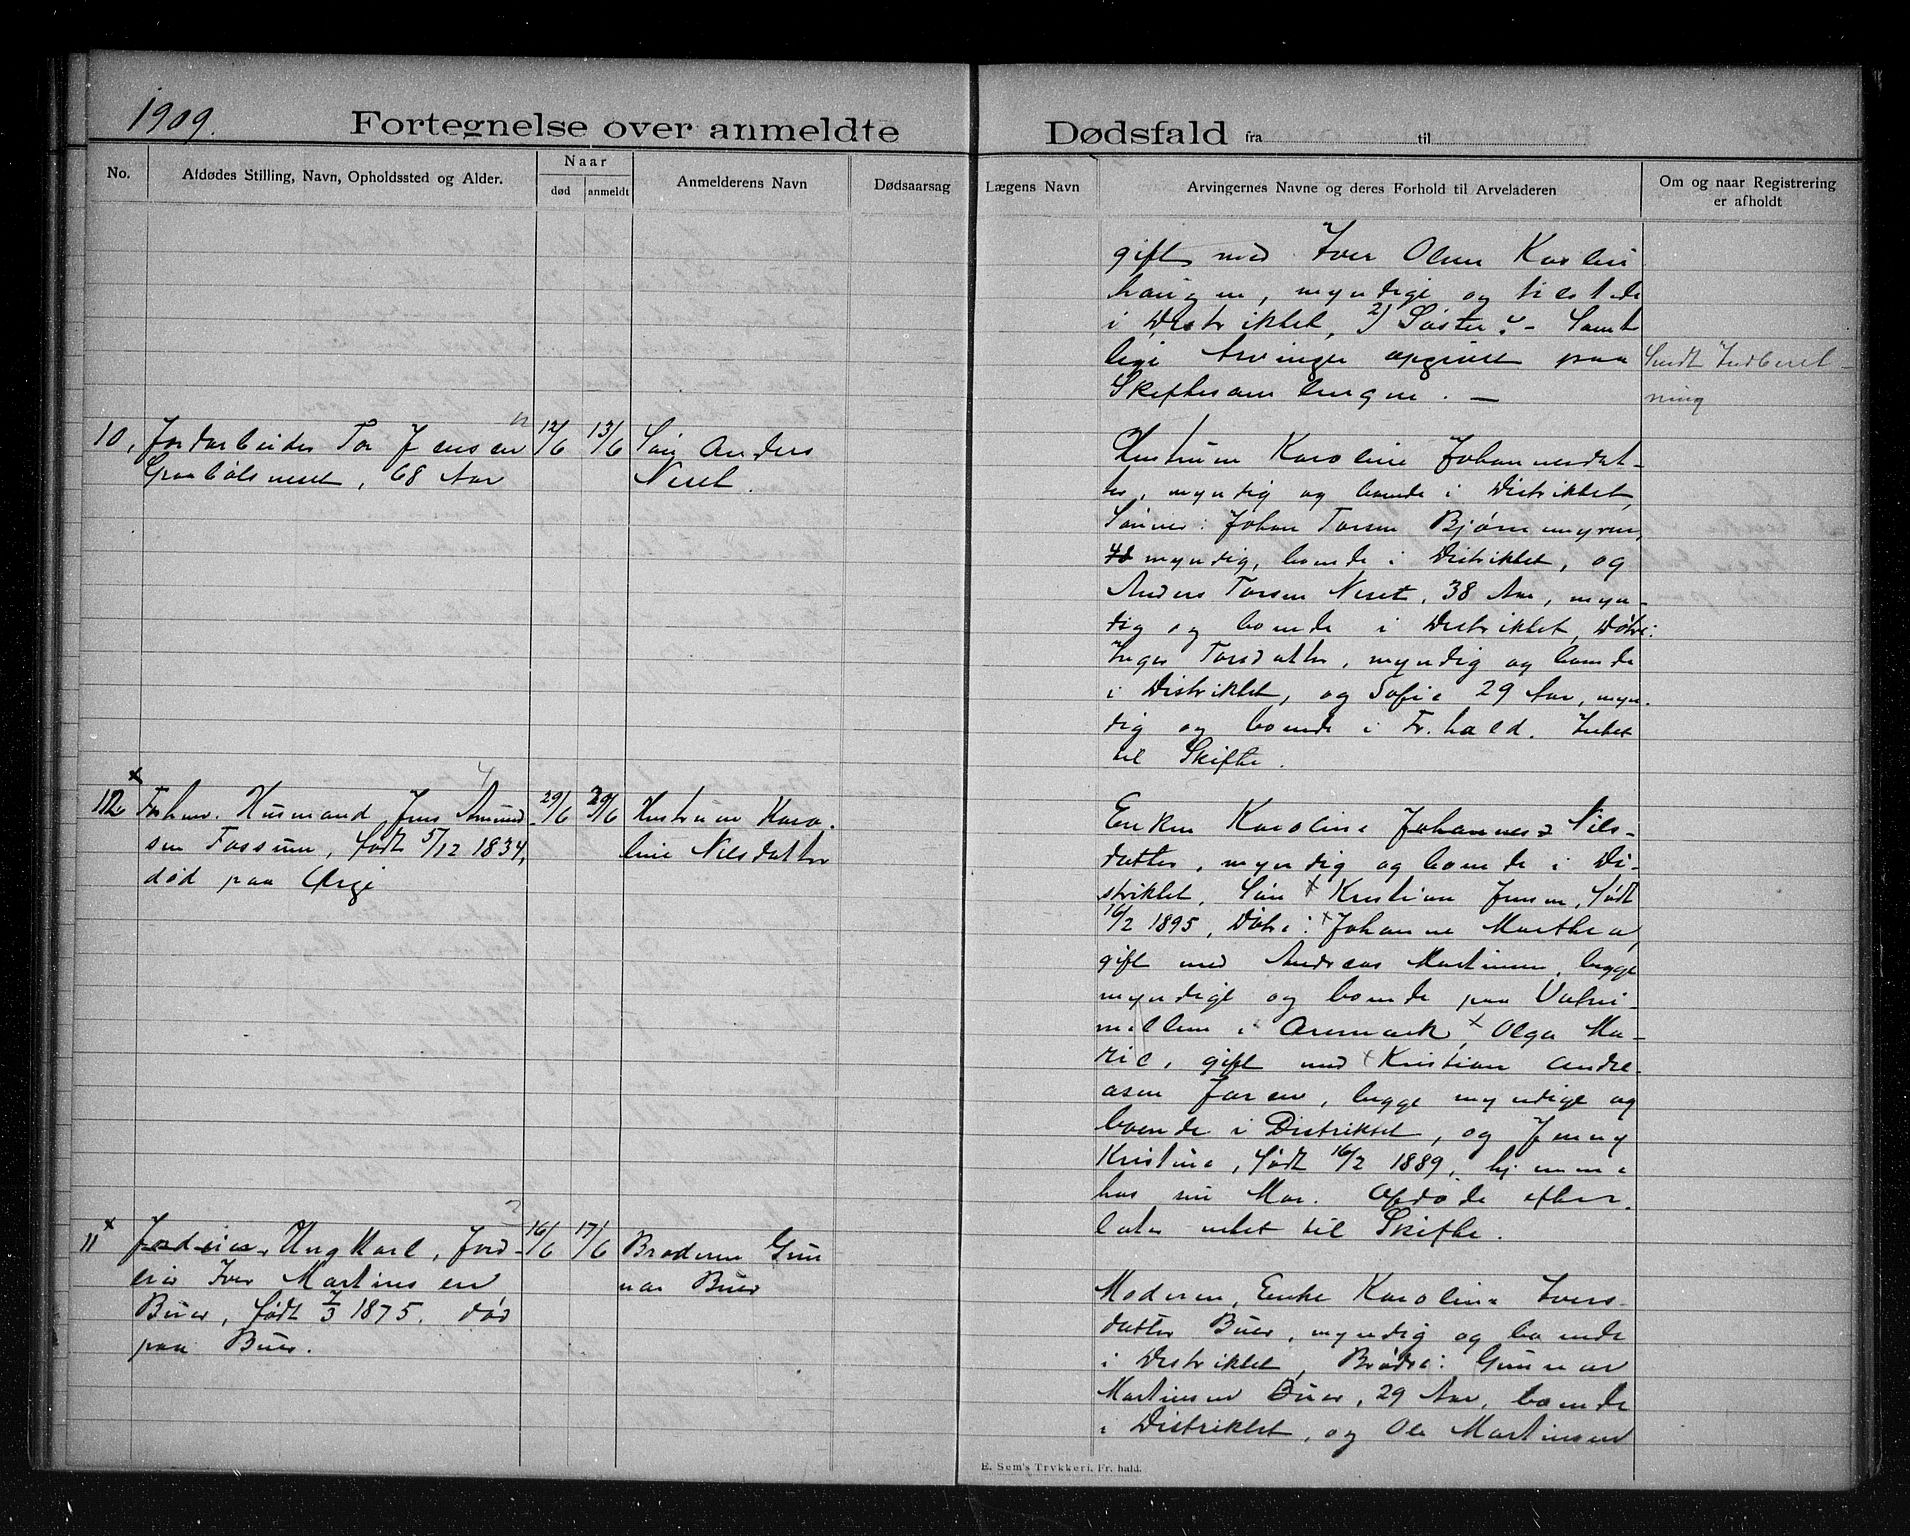 1909.
Fortegnelse over anmeldte Dødsfald fra til
No.
Afdødes Stilling, Navn, Opholdssted og Alder.
Naar
død
anmeldt
Anmelderens Navn
Dødsaarsag
Lægens Navn
Arvingernes Navne og deres Forhold til Arveladeren
Om og naar Registrering
er afholdt
gift med Iver Olsen
myndige og
i Distriktet, 2) Søster - Samt
lige Arvinger opgivet paa
Skiftesamlingen. —
Sendt Indberet-
ning
10, Jordarbeider Tor Jensen
Graabølsneset, 68 Aar
12/6 13/6
Søn Anders
Neset.
Hustrum Karoline Johannesdat-
ter, myndig og boende i Distriktet,
Sønner: Johan Torsen Bjørnemyren,
myndig, boende i Distriktet, og
Anders Torsen Neset, 38 Aar, myn-
dig og boende i Distriktet, Døtre:
Inger Torsdatter, myndig og boende
i Distriktet, og Sofie 29 Aar, myn-
dig og boende i Fr.hald. Intet
til Skifte.
x
12 Forhenv. Husmand Jens Amund-
sen Fossum, født 5/12 1834,
død paa Ørje
29/6 29/6
Hustruen Karo-
line Nilsdatter
Enken Karoline Johannes Nils-
datter, myndig og boende i Di-
striktet, Søn x Kristian Jensen, født
16/2 1895, Døtre: x Johanne Marthea,
gift med Andreas Martinsen, begge
myndige og boende paa
i Aremark, x Olga Ma-
rie, gift med x Kristian Andre-
asen begge myndige og
boende i Distriktet, og Jenny
Kristine, født 16/2 1889, hjemme
hos sin Mor. Afdøde efter-
lader intet til Skifte.
x
11 Ungkarl, Jord-
eier Iver Martinsen
Buer, født 7/3 1875. død
paa Buer.
16/6 17/6
Broderen Gun
nar Buer
Moderen, Enke Karoline Ivers-
datter Buer, myndig og boende
i Distriktet, Brødre: Gunnar
Martinsen Buer, 29 Aar, boende
i Distriktet, og Ole Martinsen
E. Sem's Trykkeri, Fr. hald.